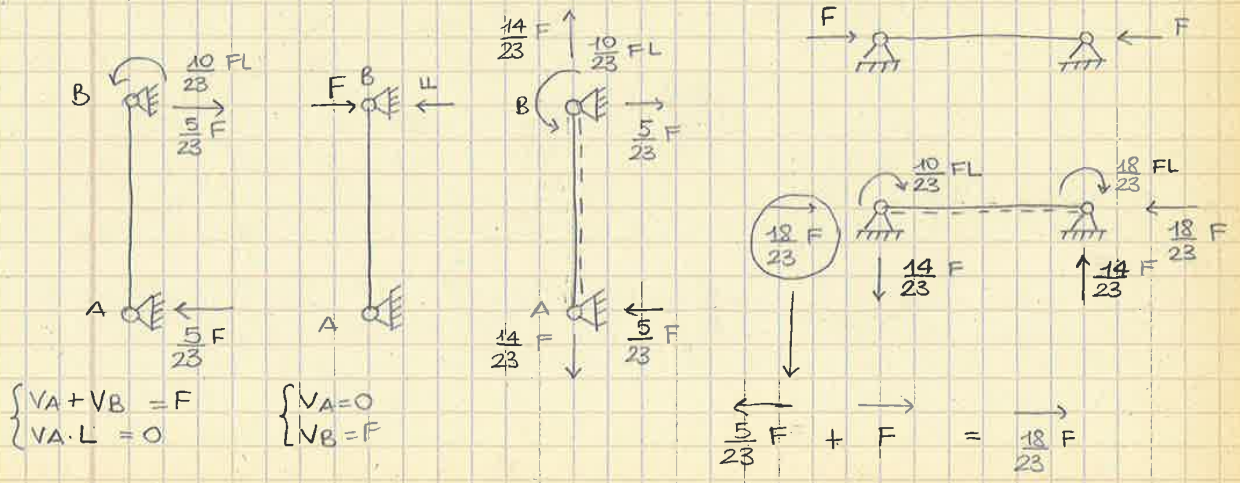 B
10/23 FL
5/23 F
A
5/23 F
{VA + VB = F
VA·L = 0
F
B
F
A
{VA = 0
VB = F
14/23 F
10/23 FL
B
5/23 F
A
14/23 F
5/23 F
F
F
10/23 FL
18/23 FL
18/23 F
18/23 F
14/23 F
14/23 F
5/23 F + F = 18/23 F